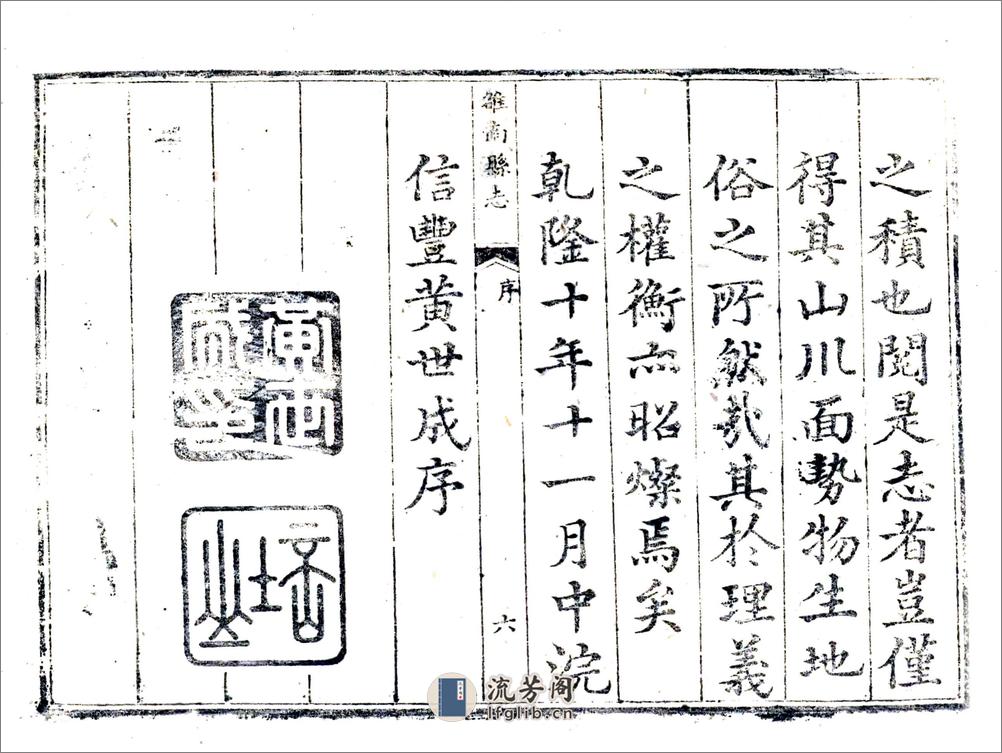 之積也閱是志者豈僅
得其山川面勢物生地
俗之所然哉其於理義
之權衡亦昭燦焉矣
乾隆十年十一月中浣
雒南縣志
序
六
信豐黃世成序
黃世成印
流芳阁
lfglib.cn